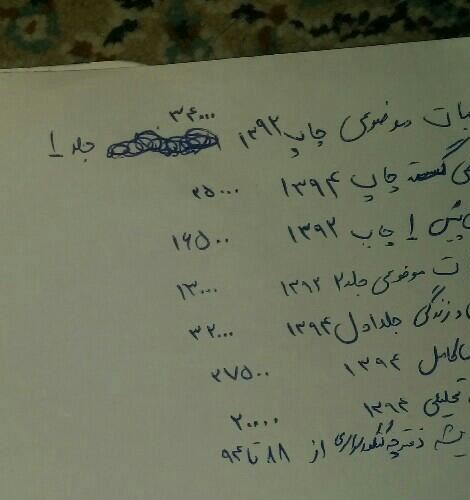 ۳۴۰۰۰
موضوعی چاپ ۱۳۹۲ جلد ۱
گسسته چاپ ۱۳۹۴ ۲۵۰۰۰
۱ چاپ ۱۳۹۲ ۱۶۵۰۰
موضوعی جلد ۲ ۱۳۹۲ ۱۳۰۰۰
زندگی جلد اول ۱۳۹۴ ۳۲۰۰۰
۱۳۹۴ ۲۷۵۰۰
تحلیلی ۱۳۹۴ ۲۰۰۰۰
دفترچه کنکور سراسری از ۸۸ تا ۹۴